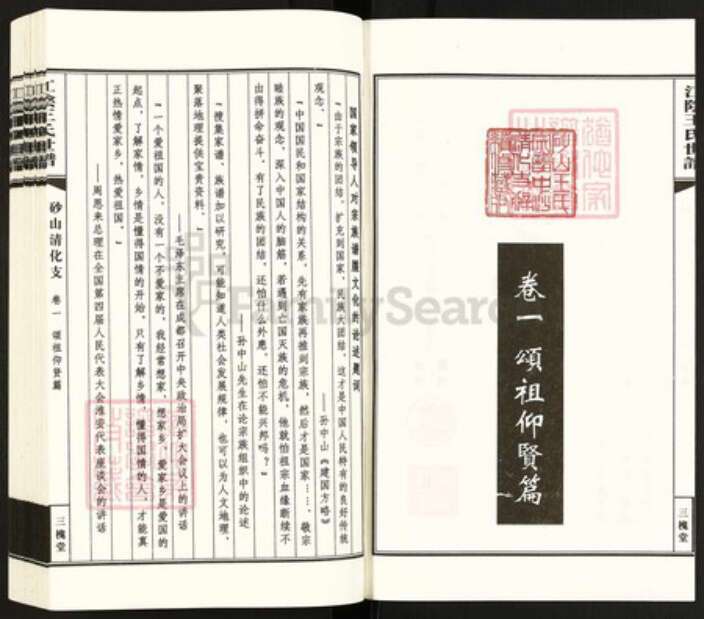 江陰王氏世譜
三槐堂
卷一 頌祖仰賢篇
国家领导人对宗族谱牒文化的论述题词
“由于宗族的团结，扩充到国家、民族大团结，这才是中国人民特有的良好传统
观念。”
——孙中山《建国方略》
“中国国民和国家结构的关系，先有家族再推到宗族，然后才是国家……敬宗
睦族的观念，深入中国人的脑筋，若遇到亡国灭族的危机，他就怕祖宗血缘断续不
由得拼命奋斗。有了民族的团结，还怕什么外患，还怕不能兴邦吗？”
——孙中山先生在论宗族组织中的论述
“搜集家谱、族谱加以研究，可能知道人类社会发展规律，也可以为人文地理、
聚落地理提供宝贵资料。”
——毛泽东主席在成都召开中央政治局扩大会议上的讲话
“一个爱祖国的人，没有一个不爱家的，我经常想家，想家乡，爱家乡是爱国的
起点，了解家情、乡情是懂得国情的开始，只有了解乡情，懂得国情的人，才能真
正热情爱家乡，热爱祖国。”
——周恩来总理在全国第四届人民代表大会淮安代表座谈会的讲话
江陰王氏世譜
砂山清化支
卷一 頌祖仰賢篇
三槐堂
FamilySearch